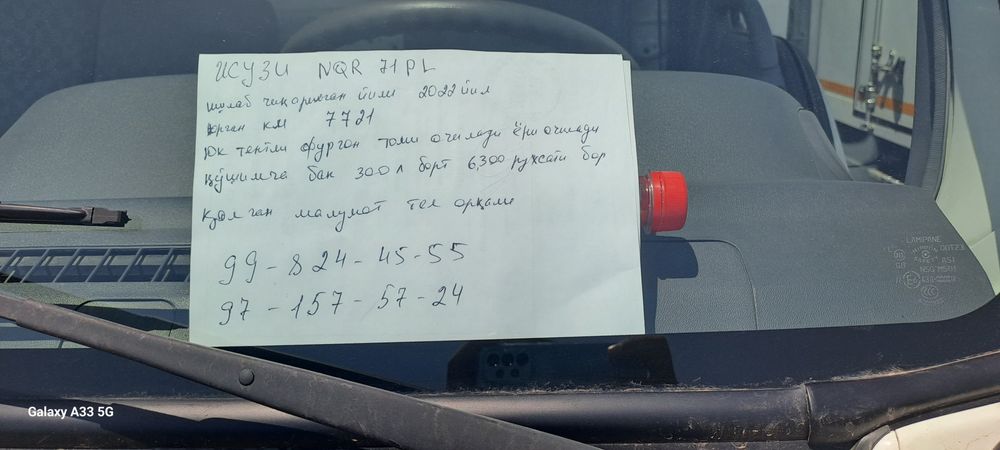 ИСУЗИ NQR 71PL
ишлаб чиқарилган йили 2022 йил
юрган км 7721
Юк тентли фургон томи очилади ёри очилади
қўшимча бак 300 л борт 6,300 рухсати бор
Қолган малумот тел орқали
99-824-45-55
97-157-57-24
LAMPANE
DOT23
AS1
M501
Galaxy A33 5G